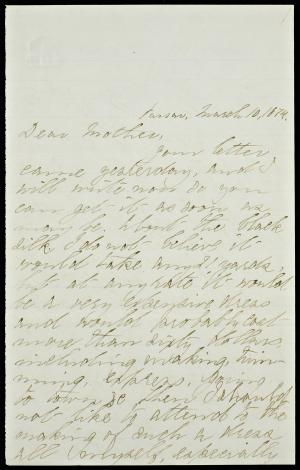 Vassar, March 10, 1874.
Dear Mother,
Your letter
came yesterday, and I
will write now so you
can get it as soon as
may be. About the black
silk I do not believe it
would take any yards,
but at any rate it would
be a very expensive dress
and would probably cost
more than sixty dollars
including making, trim-
ming, express, going
to town &c. Then I should
not like to attend to the
making of such a dress
all myself, especially